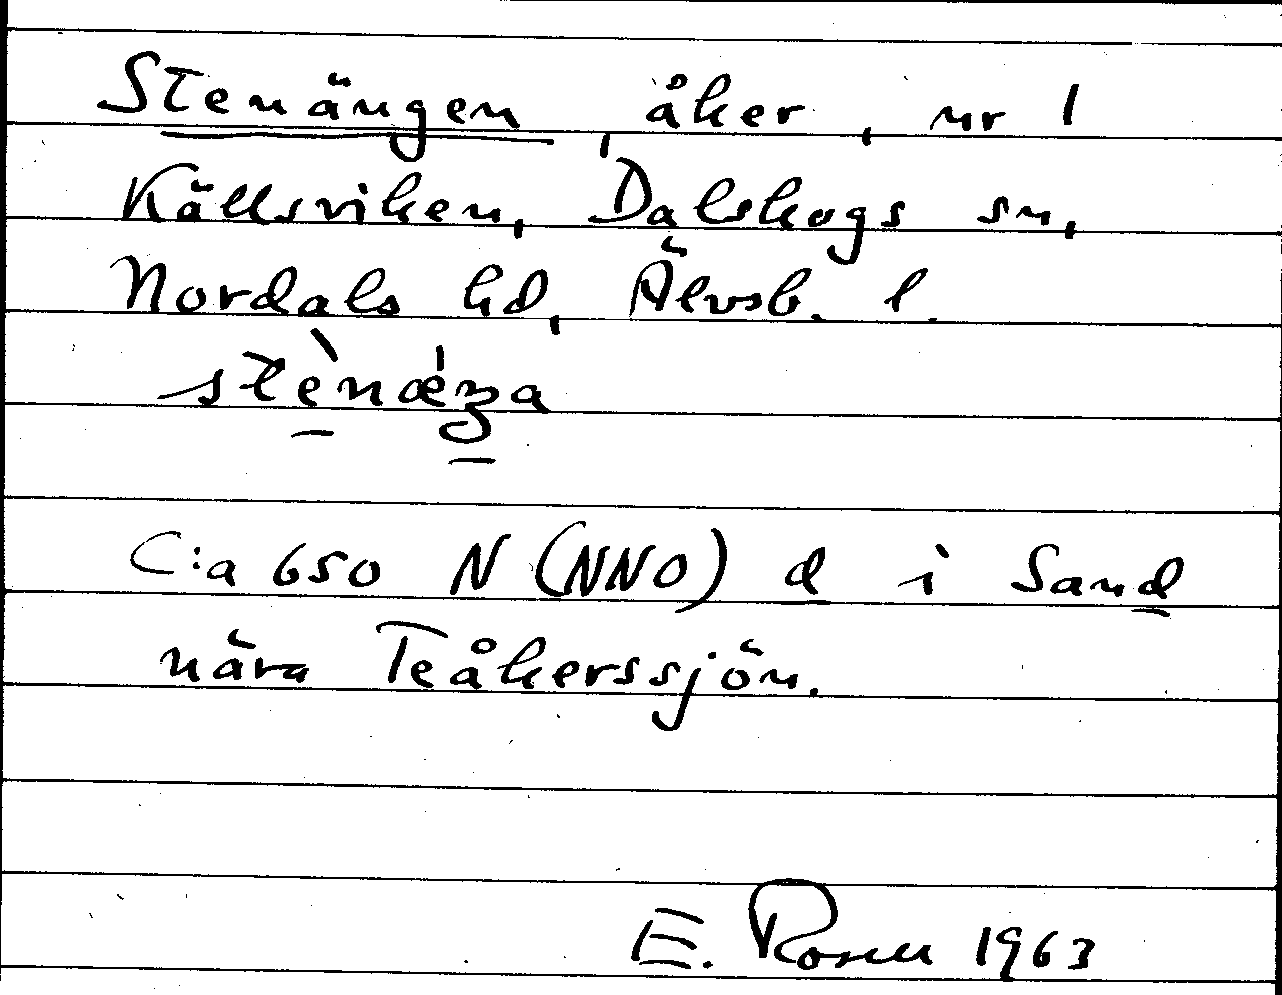 Stenängen, åker, nr 1
Källsviken, Dalskogs sn,
Nordals hd, Älvsb. l.
stènǽŋa
C:a 650 N (NNO) d i Sand
nära Teåkerssjön.
E. Rosell 1963